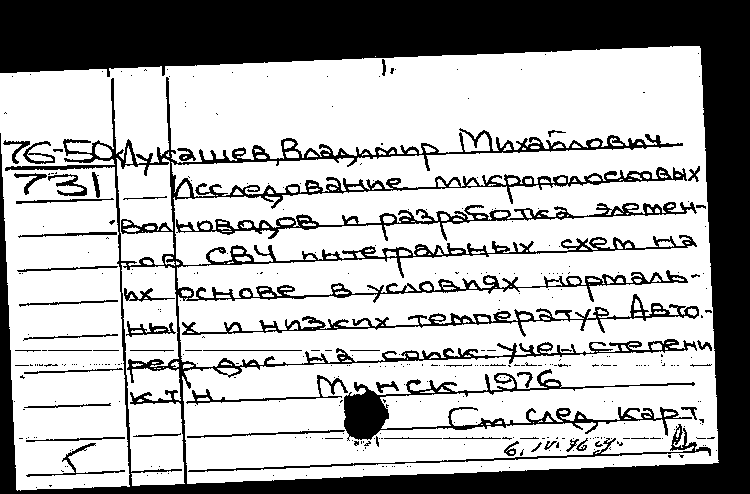 1.
76-50 Лукашев, Владимир Михайлович
731 Исследование микрополосковых
волноводов и разработка элемен-
тов СВЧ интегральных схем на
их основе в условиях нормаль-
ных и низких температур. Авто-
реф. дис. на соиск. учен. степени
к.т.н. Минск, 1976
См. след. карт.